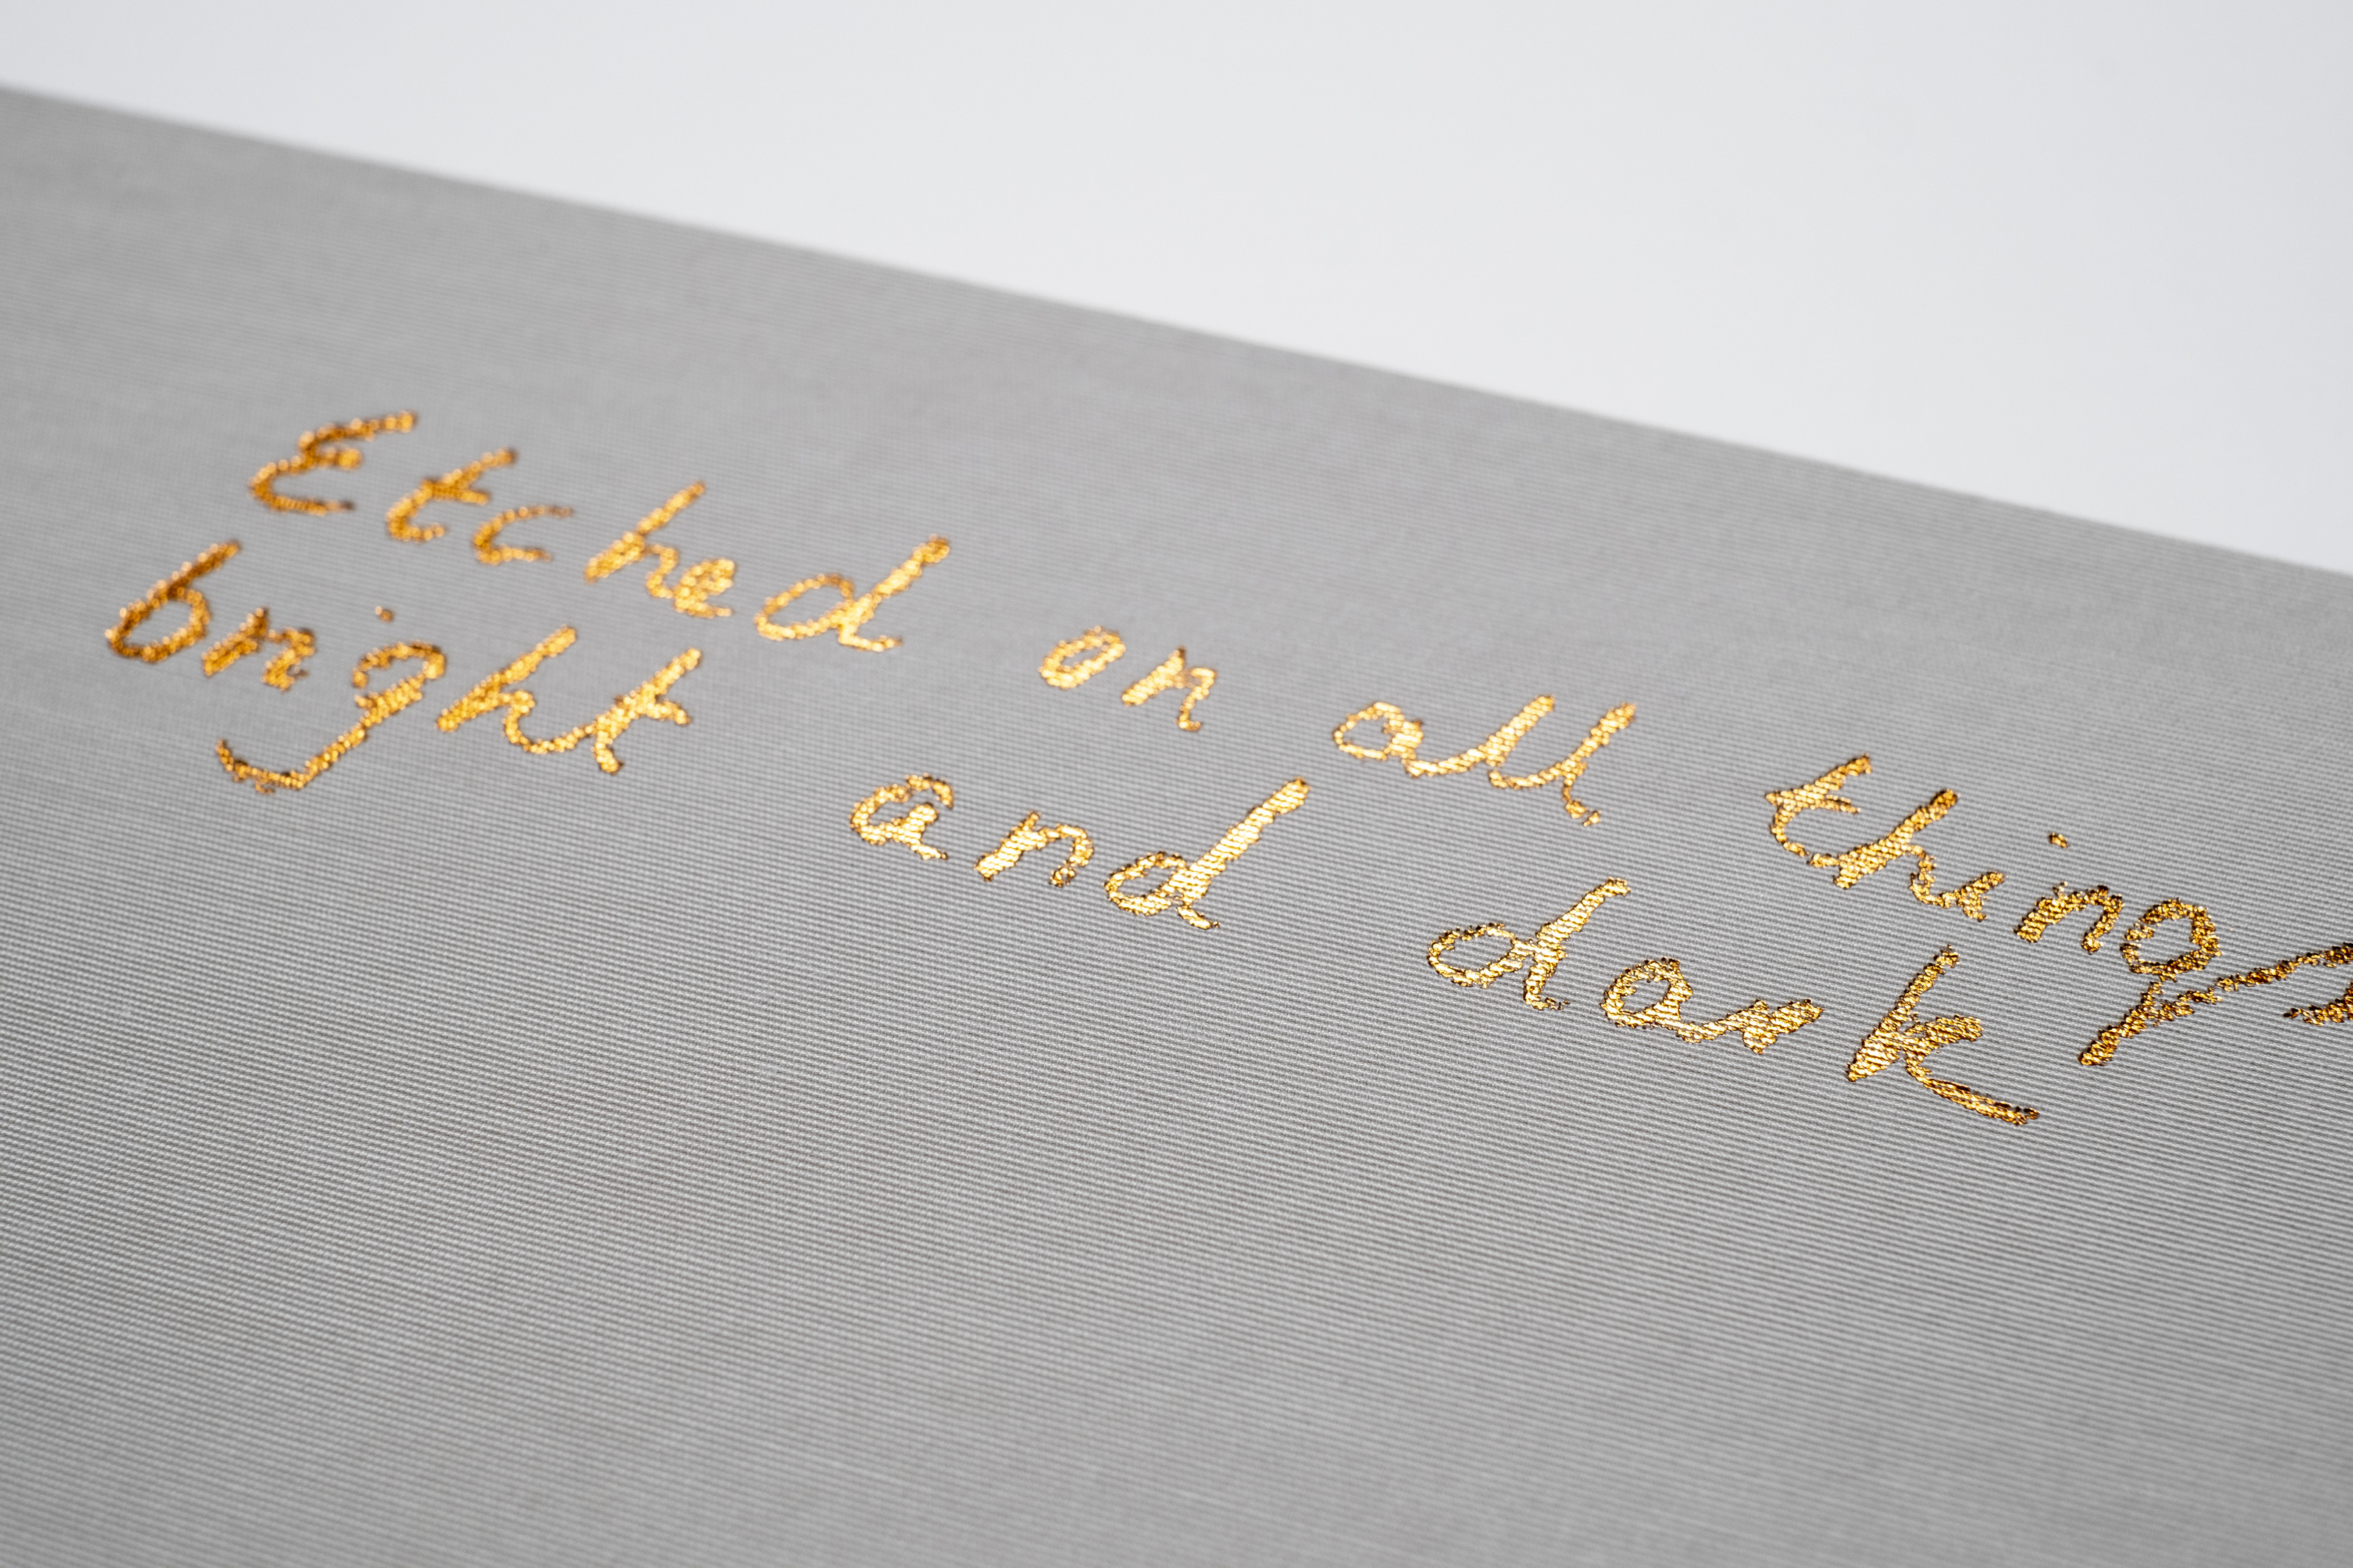 Etched on all things
bright and dark